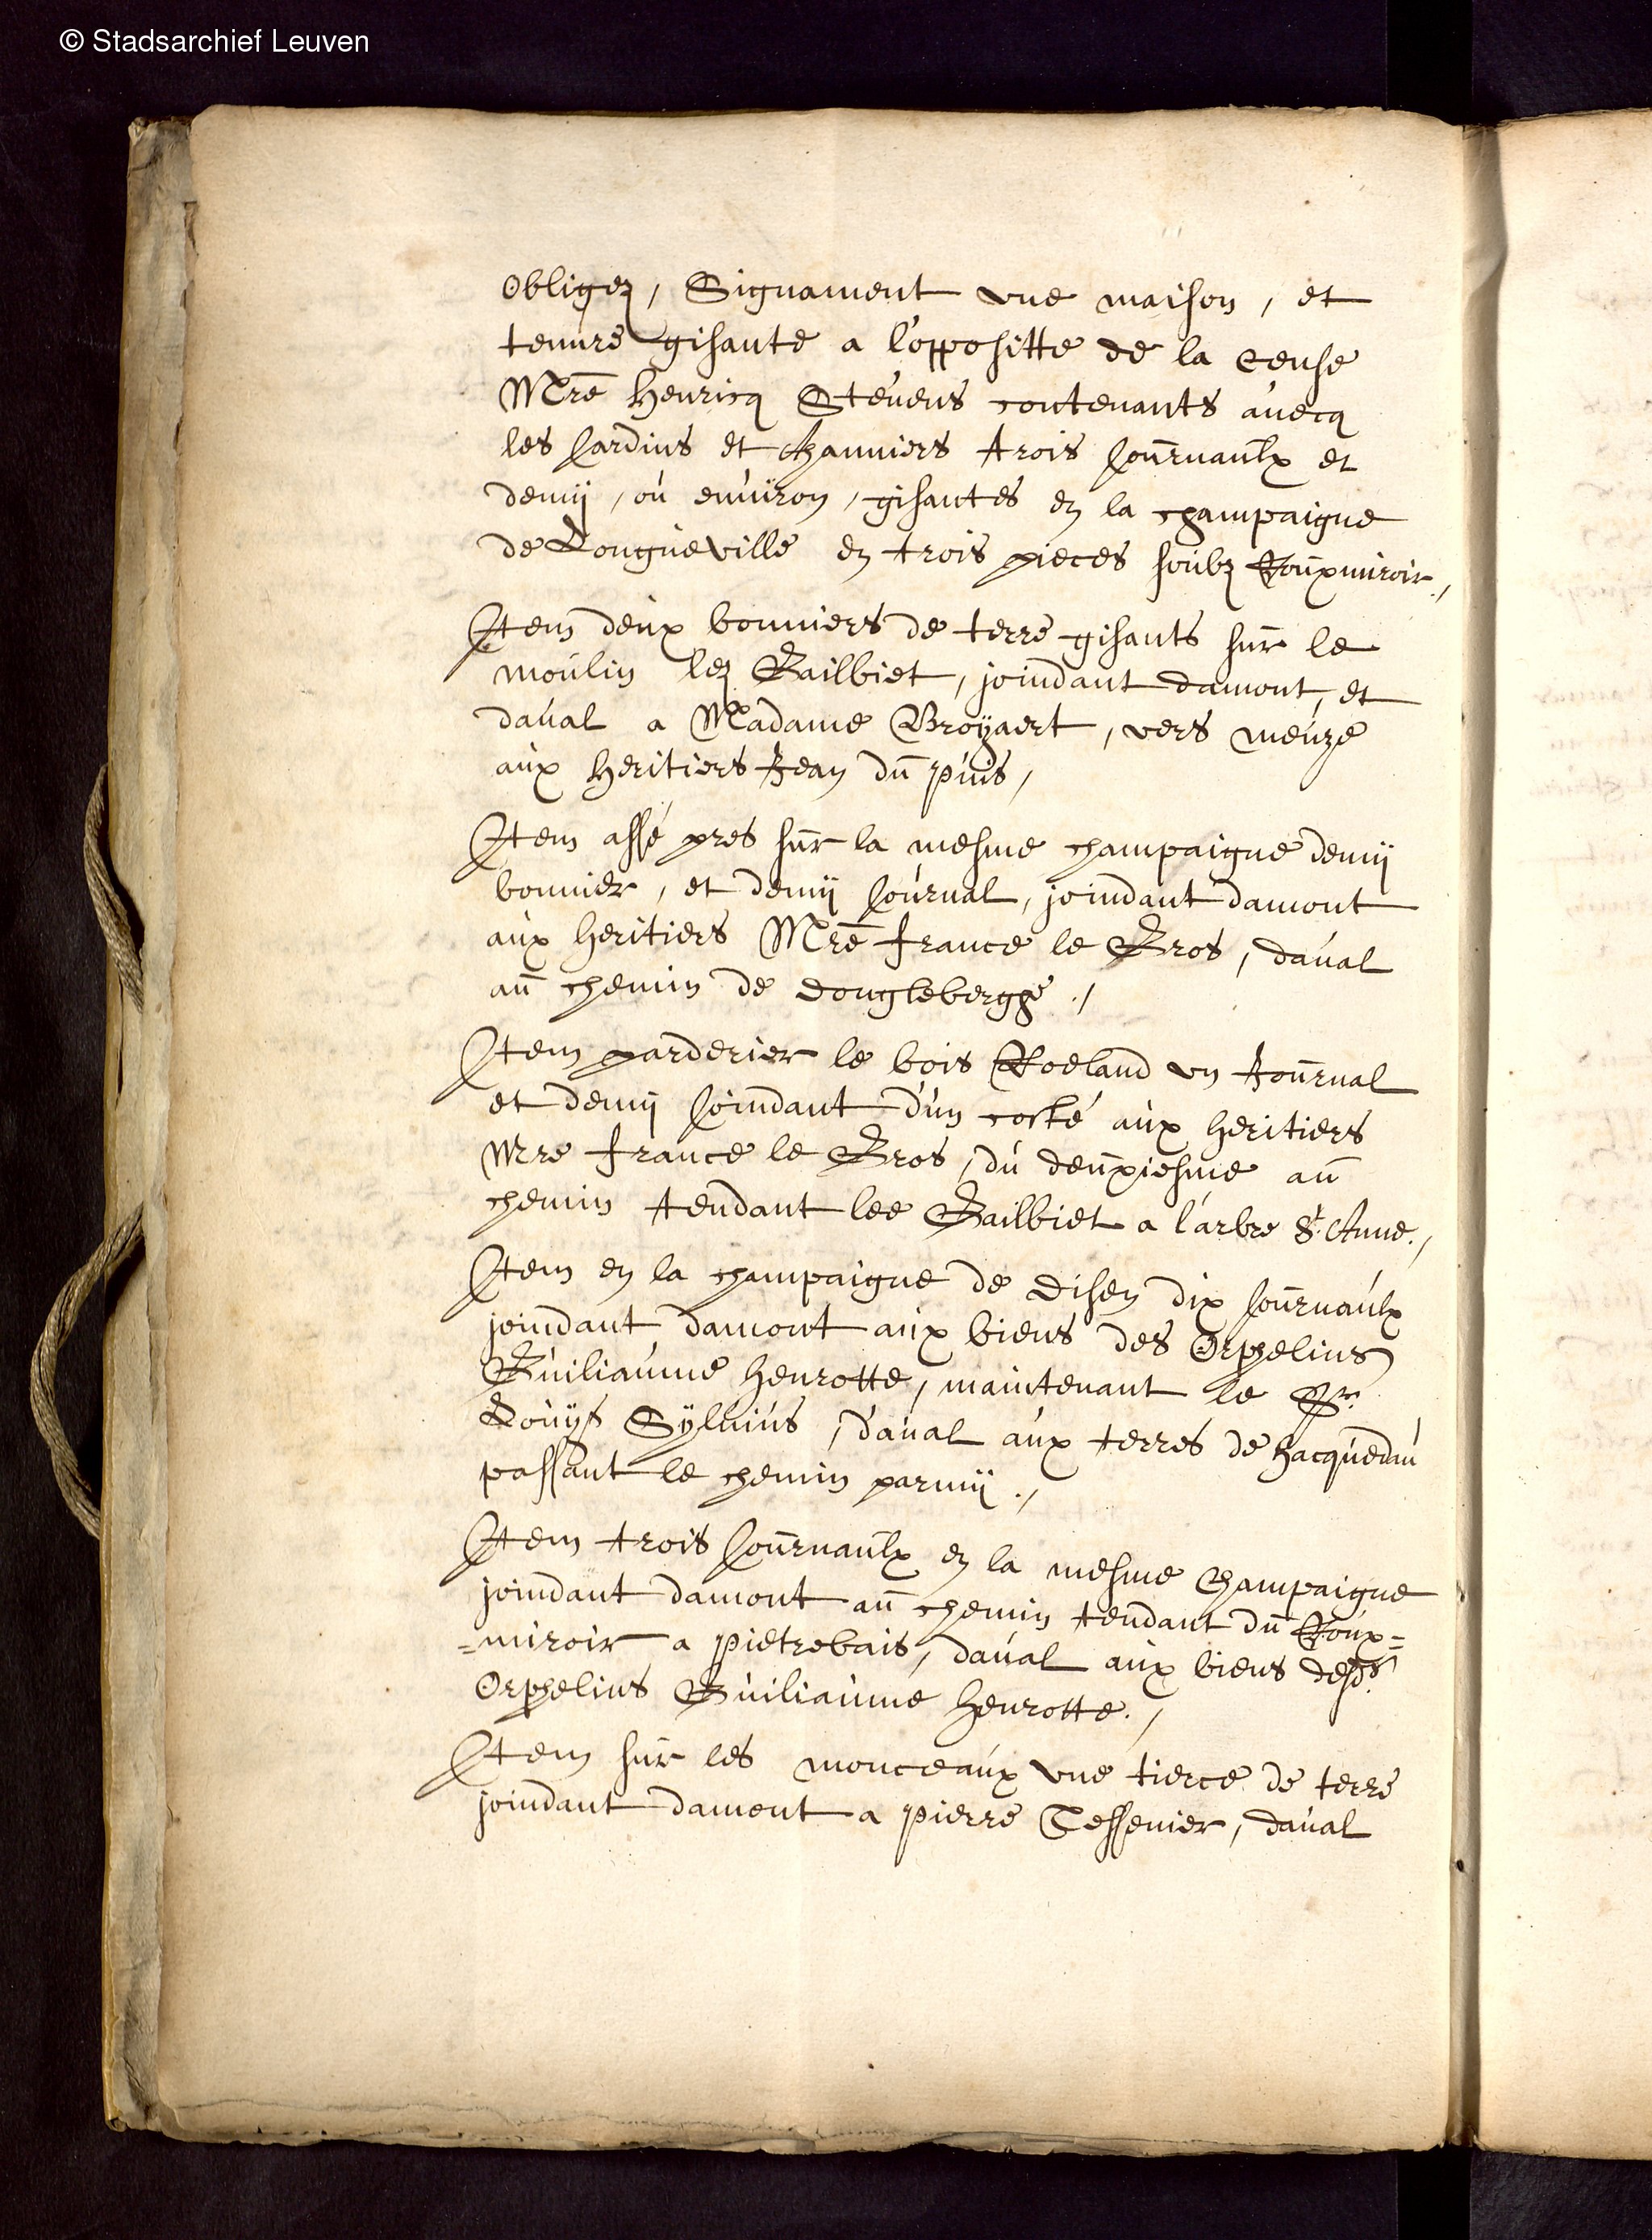 © Stadsarchief Leuven
obligez, Signament une maison, et
tenure gisante a l'oppositte de la cense
Mre Henricq Stevens contenants avecq
les Jardins et chanviers trois Journaulx et
demij, ou environ, gisantes en la champaigne
de Longueville en trois pieces soubz Rouxmiroir./
Item deux bonniers de terre gisants sur le
moulin lez Gailbiet, joindant damont, et
daval a Madame Broyaert, vers meuze
aux Heritiers Jean du Puis,
Item assé pres sur la mesme champaigne demij
bonnier, et demij Journal, joindant damont
aux Heritiers Mre france le Gros, daval
au chemin de Donglebergge./
Item parderier le bois Roeland un Journal
et demij Joindant d'un costé aux Heritiers
Mre france le Gros, du deuxiesme au
chemin tendant lee Gailbiet a l'arbre St. Anne./
Item en la champaigne de Disen dix Journaulx
joindant damont aux biens des Orphelins
Guiliaume Henrotte, maintenant le Sr.
Louys Sylvius, daval aux terres de Hacquedau
passant le chemin parmij./
Item trois Journaulx en la mesme Champaigne
joindant damont au chemin tendant du Roux=
=miroir a Pietrebais, daval aux biens desds.
Orphelins Guiliaume Henrotte./
Item sur les monceaux une tierce de terre
joindant damont a Pierre Tessenier, daval